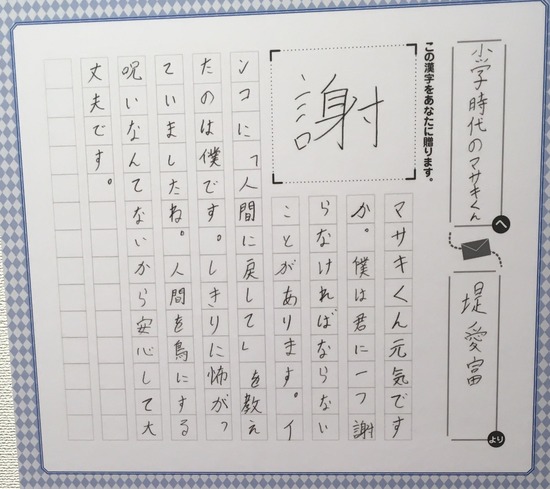 小学時代のマサキくん へ
堤 愛富 より
この漢字をあなたに贈ります。
謝
マサキくん元気です
か。僕は君に一つ謝
らなければならない
ことがあります。イ
ンコに「人間に戻して」を教え
たのは僕です。しきりに怖がっ
ていましたね。人間を鳥にする
呪いなんてないから安心して大
丈夫です。